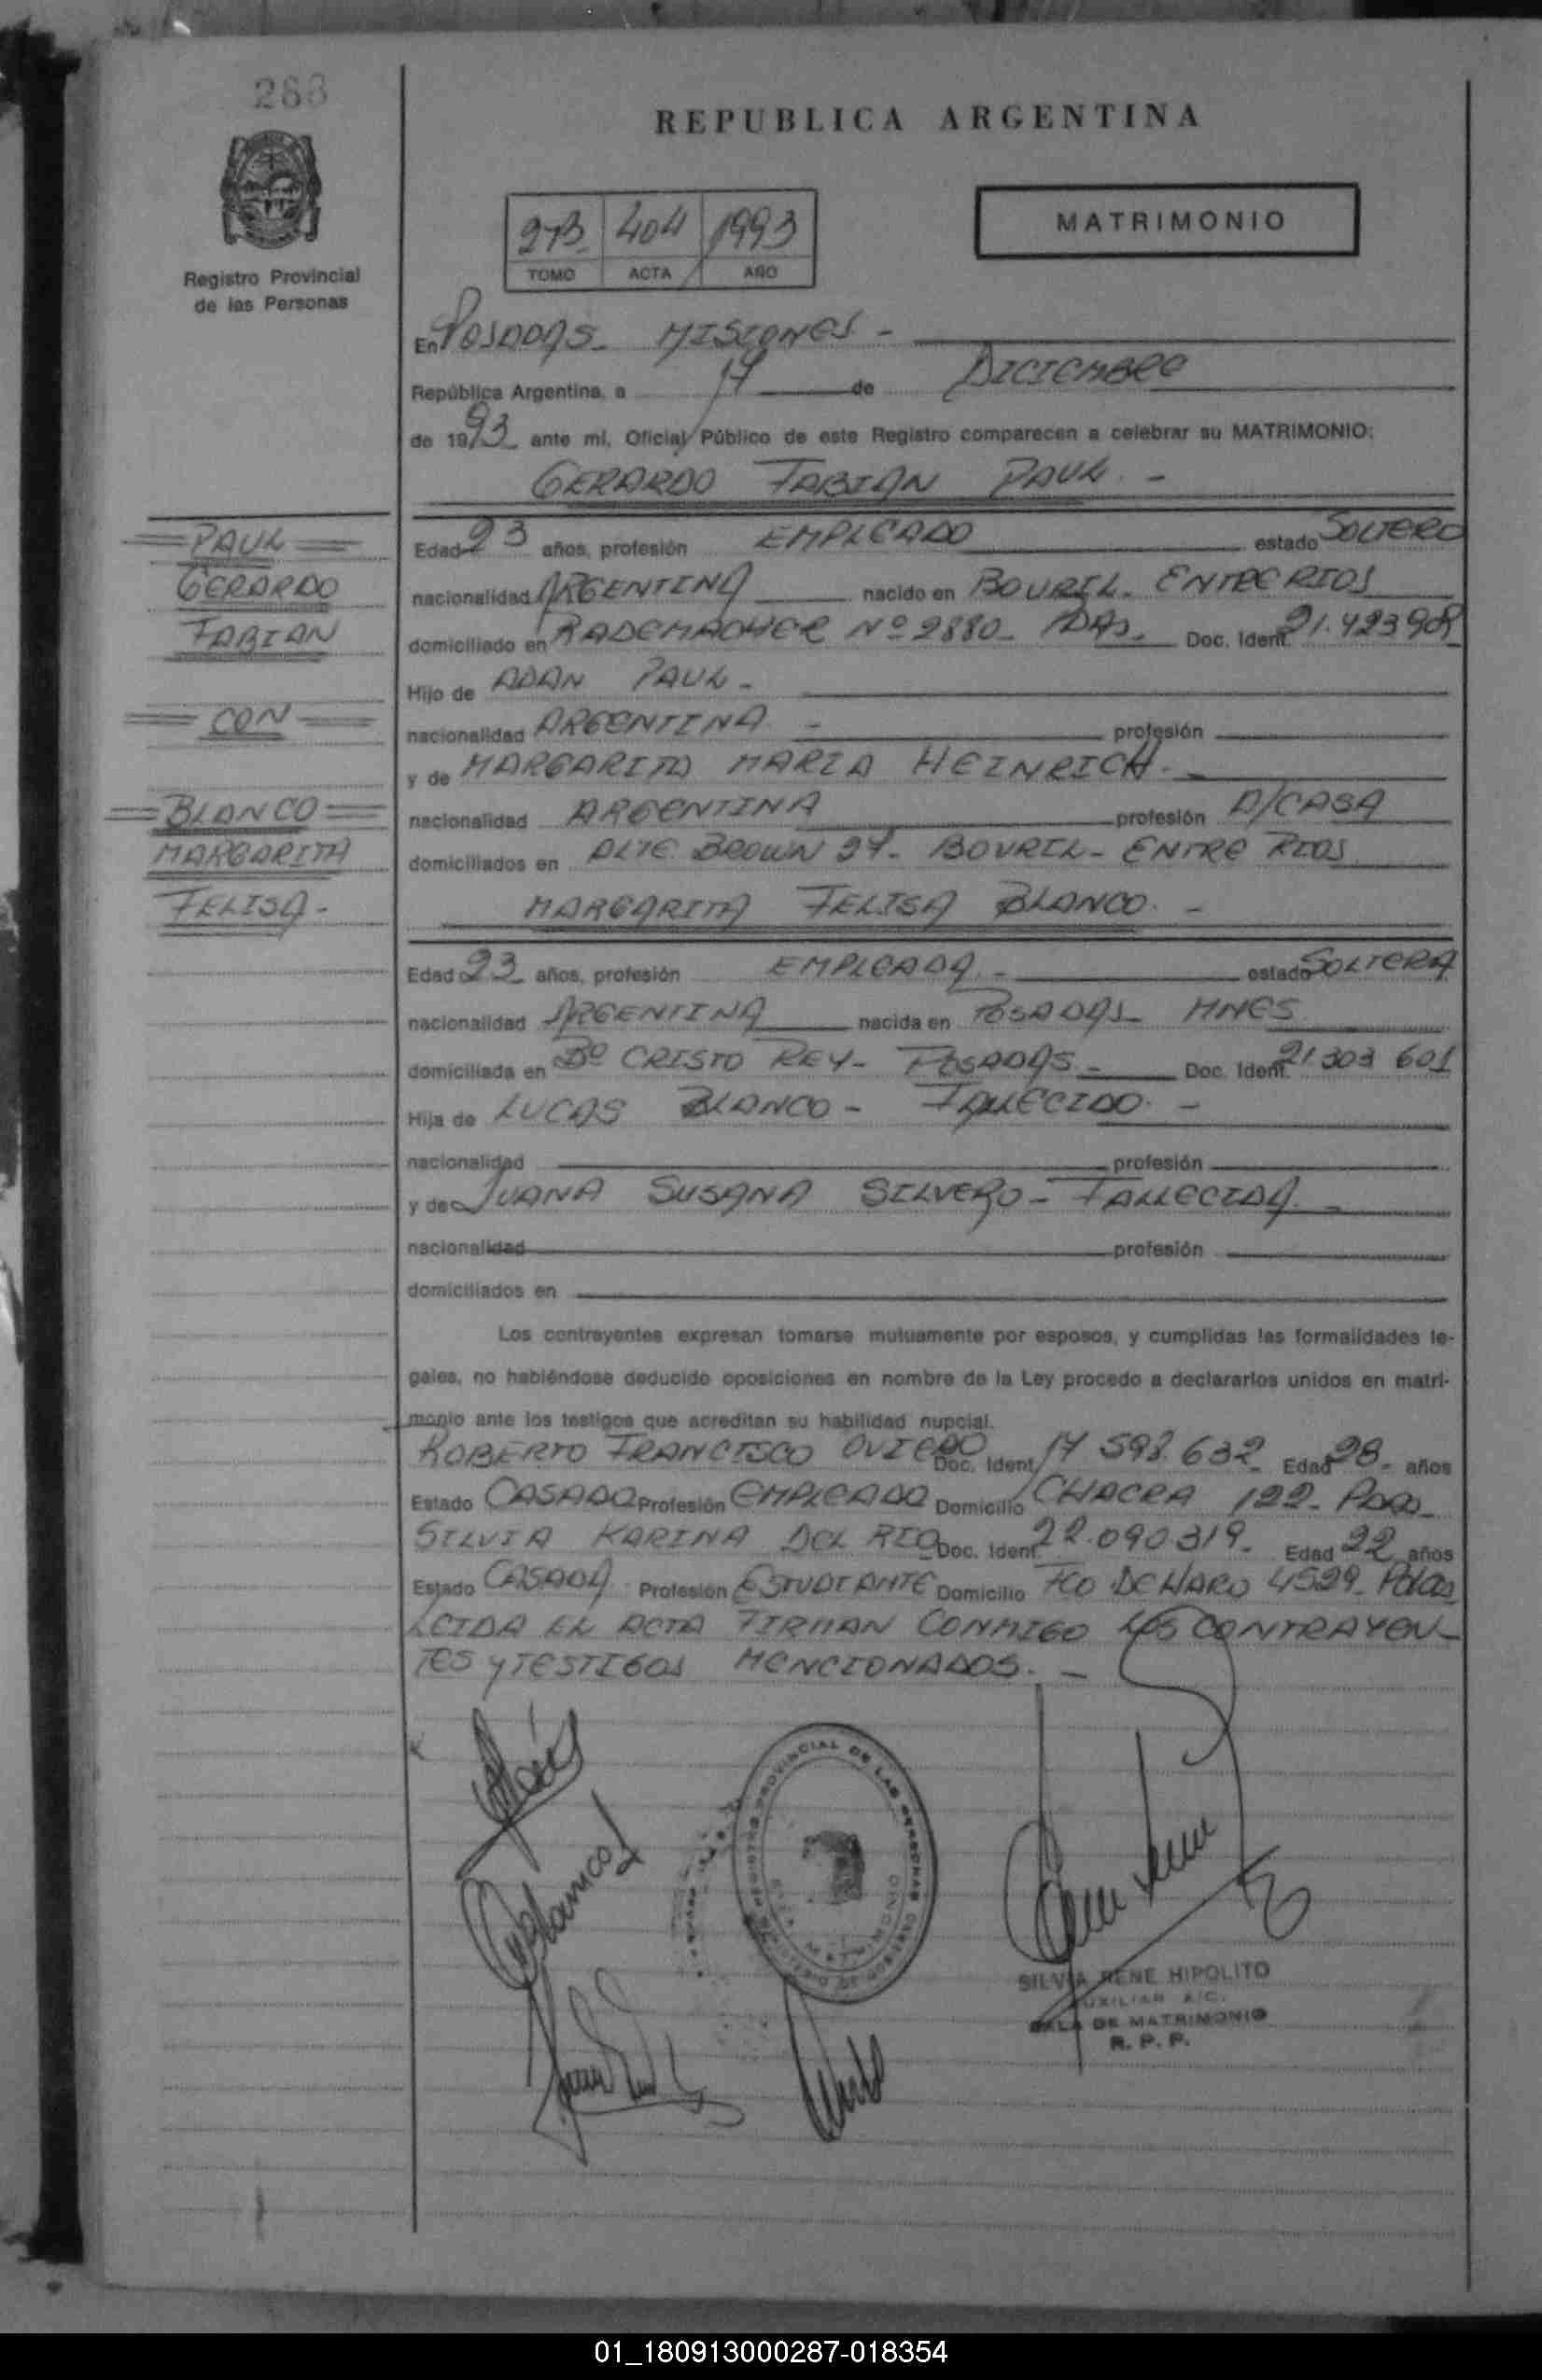 268
REPUBLICA ARGENTINA
MATRIMONIO
404 1993
TOMO ACTA AÑO
Registro Provincial
de las Personas
En POSADAS - MISIONES -
República Argentina, a 17 de DICIEMBRE
de 1993 ante mi, Oficial Público de este Registro comparecen a celebrar su MATRIMONIO:
GERARDO FABIAN PAUL. -
PAUL
GERARDO
FABIAN
CON
BLANCO
MARGARITA
FELISA -
Edad 23 años, profesión EMPLEADO estado SOLTERO
nacionalidad ARGENTINA nacido en BOVRIL. ENTRE RIOS
domiciliado en RADEMACHER Nº 2880 - PDAS. Doc. Ident. 21.423.908
Hijo de ADAN PAUL -
nacionalidad ARGENTINA - profesión
y de MARGARITA MARIA HEINRICH. -
nacionalidad ARGENTINA profesión A/CASA
domiciliados en ALTE. BROWN 27 - BOVRIL - ENTRE RIOS
MARGARITA FELISA BLANCO. -
Edad 23 años, profesión EMPLEADA. - estado SOLTERA
nacionalidad ARGENTINA nacida en POSADAS - MNES
domiciliada en Bº CRISTO REY - POSADAS - Doc. Ident. 21.303 601
Hija de LUCAS BLANCO - FALLECIDO. -
nacionalidad profesión
y de JUANA SUSANA SILVERO - FALLECIDA. -
nacionalidad profesión
domiciliados en
Los contrayentes expresan tomarse mutuamente por esposos, y cumplidas las formalidades le-
gales, no habiéndose deducido oposiciones en nombre de la Ley procedo a declararlos unidos en matri-
monio ante los testigos que acreditan su habilidad nupcial.
ROBERTO FRANCISCO OVIEDO Doc. Ident. 17 598.632 Edad 28 - años
Estado CASADO Profesión EMPLEADO Domicilio CHACRA 122 - Pdas
SILVIA KARINA DEL RIO Doc. Ident. 22.090.319 - Edad 22 años
Estado CASADA Profesión ESTUDIANTE Domicilio FCO DE HARO 4529 - Pdas
LEIDA EL ACTA FIRMAN CONMIGO LOS CONTRAYEN-
TES Y TESTIGOS MENCIONADOS. -
Blanco
REGISTRO PROVINCIAL DE LAS PERSONAS
SILVIA RENE HIPOLITO
AUXILIAR A/C.
SALA DE MATRIMONIO
R. P. P.
01_180913000287-018354